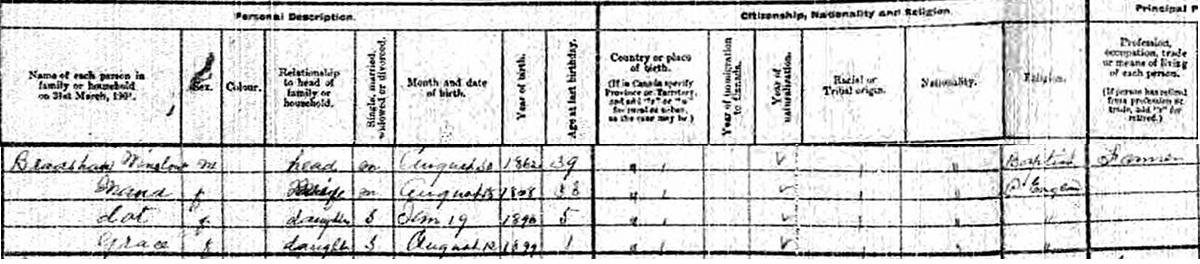 Personal Description. Citizenship, Nationality and Religion. Principal P
Name of each person in family or household on 31st March, 1901. Sex. Colour. Relationship to head of family or household. Single, married, widowed or divorced. Month and date of birth. Year of birth. Age at last birthday. Country or place of birth. (If in Canada specify Province or Territory, and add "r" or "u" for rural or urban, as the case may be) Year of immigration to Canada. Year of naturalization. Racial or Tribal origin. Nationality. Religion. Profession, occupation, trade or means of living of each person. (If person has retired from profession or trade, add "r" for retired.)
Bradshaw Winslow m head m August 39 " " ✓ " " Baptist Farmer
f m August " " ✓ " " C England
Dot f daughter S 19 5 " " ✓ " " "
Grace f daughter S August 1899 1 " " ✓ " " "